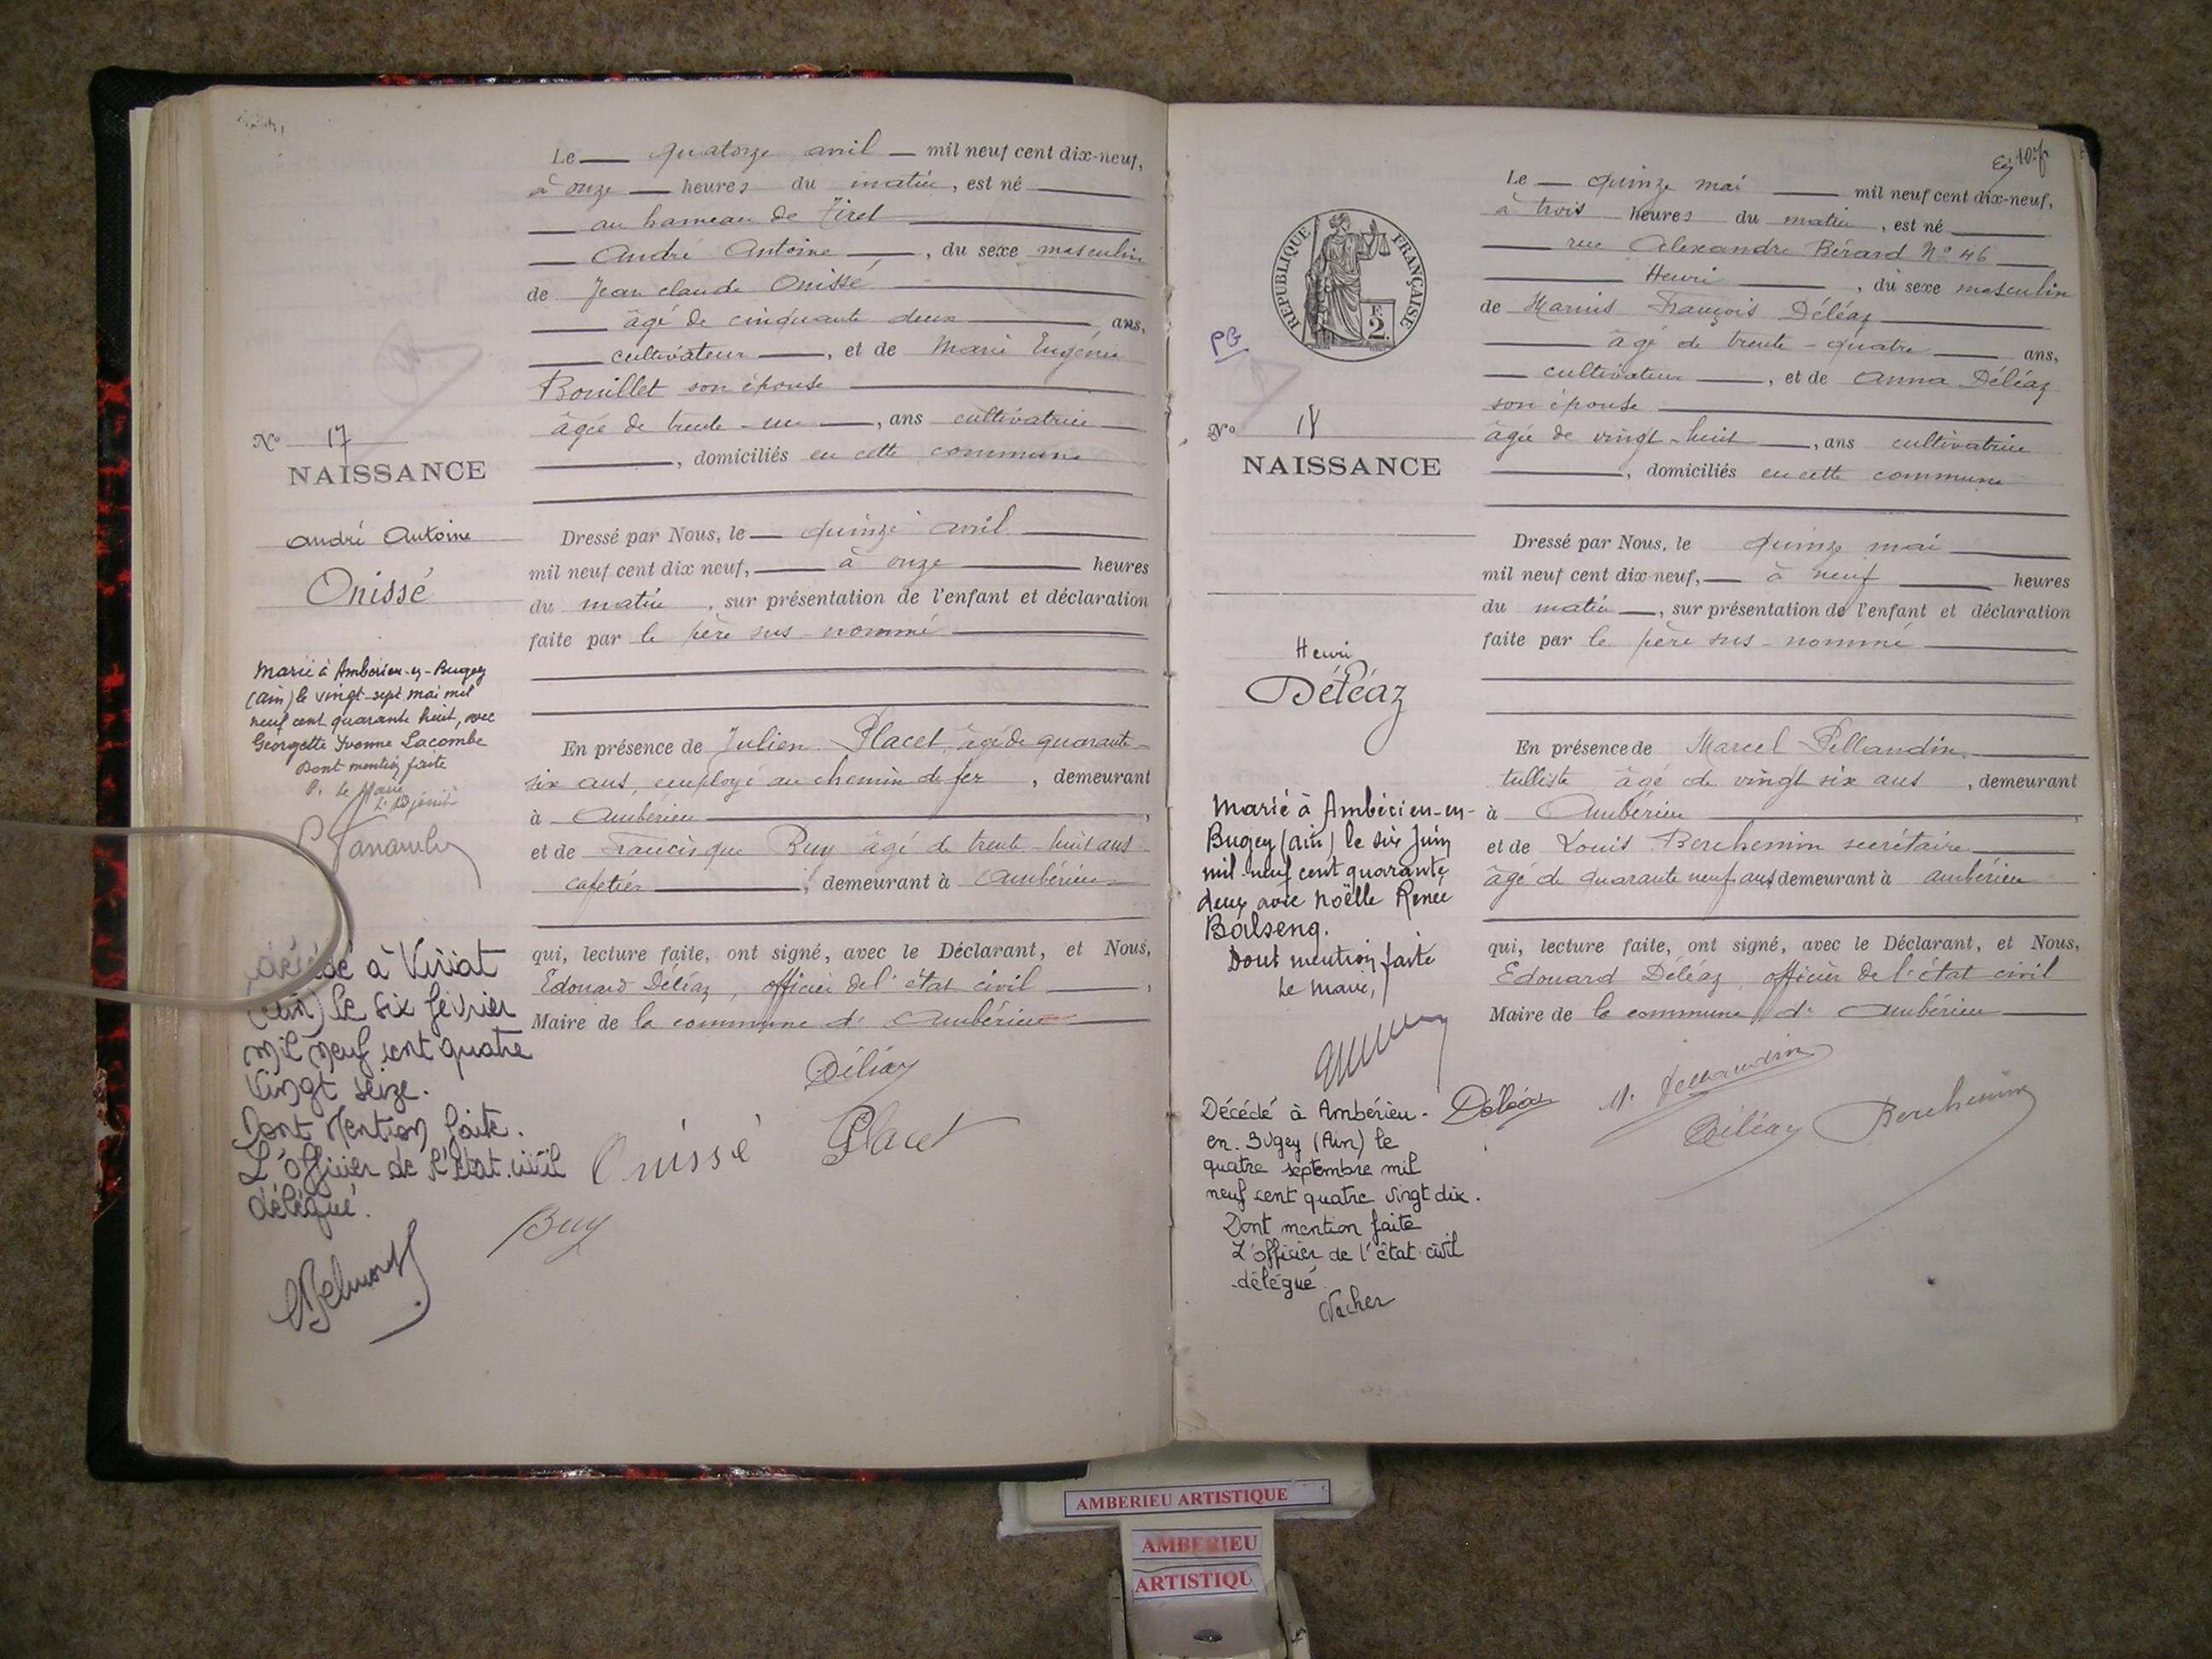 Le quatorze avril mil neuf cent dix-neuf,
à onze heures du matin, est né
au hameau de Tiret
André Antoine, du sexe masculin
de Jean Claude Onissé
âgé de cinquante deux ans,
cultivateur, et de Marie Eugénie
Bouillet son épouse
âgée de trente-un, ans cultivatrice
, domiciliés en cette commune
Nº 17
NAISSANCE
André Antoine
Onissé
Dressé par Nous, le quinze avril
mil neuf cent dix neuf, à onze heures
du matin, sur présentation de l'enfant et déclaration
faite par le père sus-nommé
En présence de Julien Placet, âgé de quarante-
six ans, employé au chemin de fer, demeurant
à Ambérieu,
et de Francisque Buy âgé de trente-huit ans
cafetier, demeurant à Ambérieu
qui, lecture faite, ont signé, avec le Déclarant, et Nous,
Edouard Déléaz, officier de l'état civil,
Maire de la commune d'Ambérieu
Marié à Ambérieu-en-Bugey
(Ain) le vingt-sept mai mil
neuf cent quarante huit, avec
Georgette Yvonne Lacombe
Dont mention faite
P. le Maire
L'adjoint
décédé à Viriat
(Ain) le six février
mil neuf cent quatre
vingt seize.
Dont mention faite.
L'officier de l'état civil
délégué.
Déléaz
Onissé Placet
Buy
107
Le quinze mai mil neuf cent dix-neuf,
à trois heures du matin, est né
rue Alexandre Bérard Nº 46
Henri, du sexe masculin
de Marius François Déléaz
âgé de trente-quatre ans,
cultivateur, et de Anna Déléaz
son épouse
âgée de vingt-huit, ans cultivatrice
, domiciliés en cette commune
REPUBLIQUE FRANÇAISE
2 F.
PG
Nº 18
NAISSANCE
Henri
Déléaz
Dressé par Nous, le quinze mai
mil neuf cent dix neuf, à neuf heures
du matin, sur présentation de l'enfant et déclaration
faite par le père sus-nommé
En présence de Marcel Pellaudin
tulliste âgé de vingt six ans, demeurant
à Ambérieu,
et de Louis Berchemin secrétaire
âgé de quarante neuf ans demeurant à Ambérieu
qui, lecture faite, ont signé, avec le Déclarant, et Nous,
Edouard Déléaz officier de l'état civil
Maire de la commune d'Ambérieu
Marié à Ambérieu-en-
Bugey (Ain) le six Juin
mil neuf cent quarante
deux avec Noëlle Renée
Balseng.
Dont mention faite
Le Maire,
Décédé à Ambérieu-
en-Bugey (Ain) le
quatre septembre mil
neuf cent quatre vingt dix.
Dont mention faite
L'officier de l'état civil
délégué
Vacher
Déléaz M. Pellaudin
Déléaz Berchemin
AMBERIEU ARTISTIQUE
AMBERIEU
ARTISTIQU